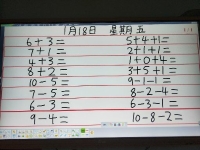 1月18日 星期五
6+3= 5+4+1=
7+1= 2+1+1=
4+3= 1+0+4=
8+2= 3+5+1=
10-5= 9-1-1=
7-5= 8-2-4=
6-3= 6-3-1=
9-4= 10-8-2=